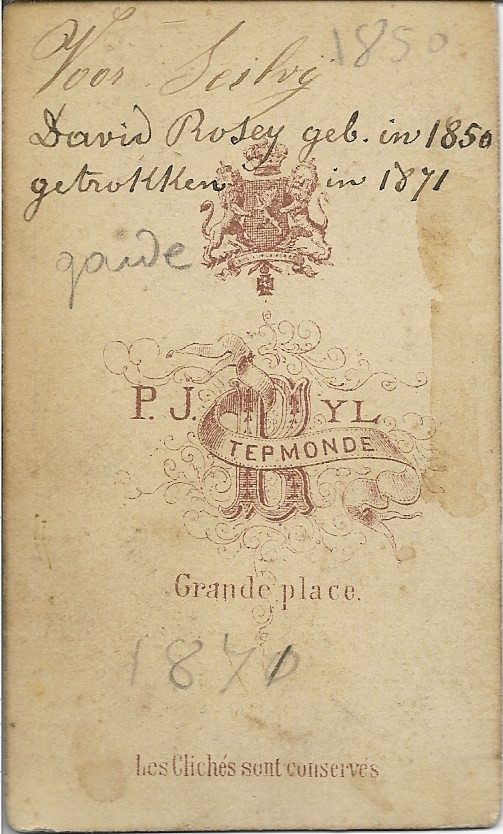 Voor 1850
David Rosey geb. in 1850
getrokken in 1871
P. J. RYL
TEPMONDE
Grande place.
1870
Les Clichés sont conservés